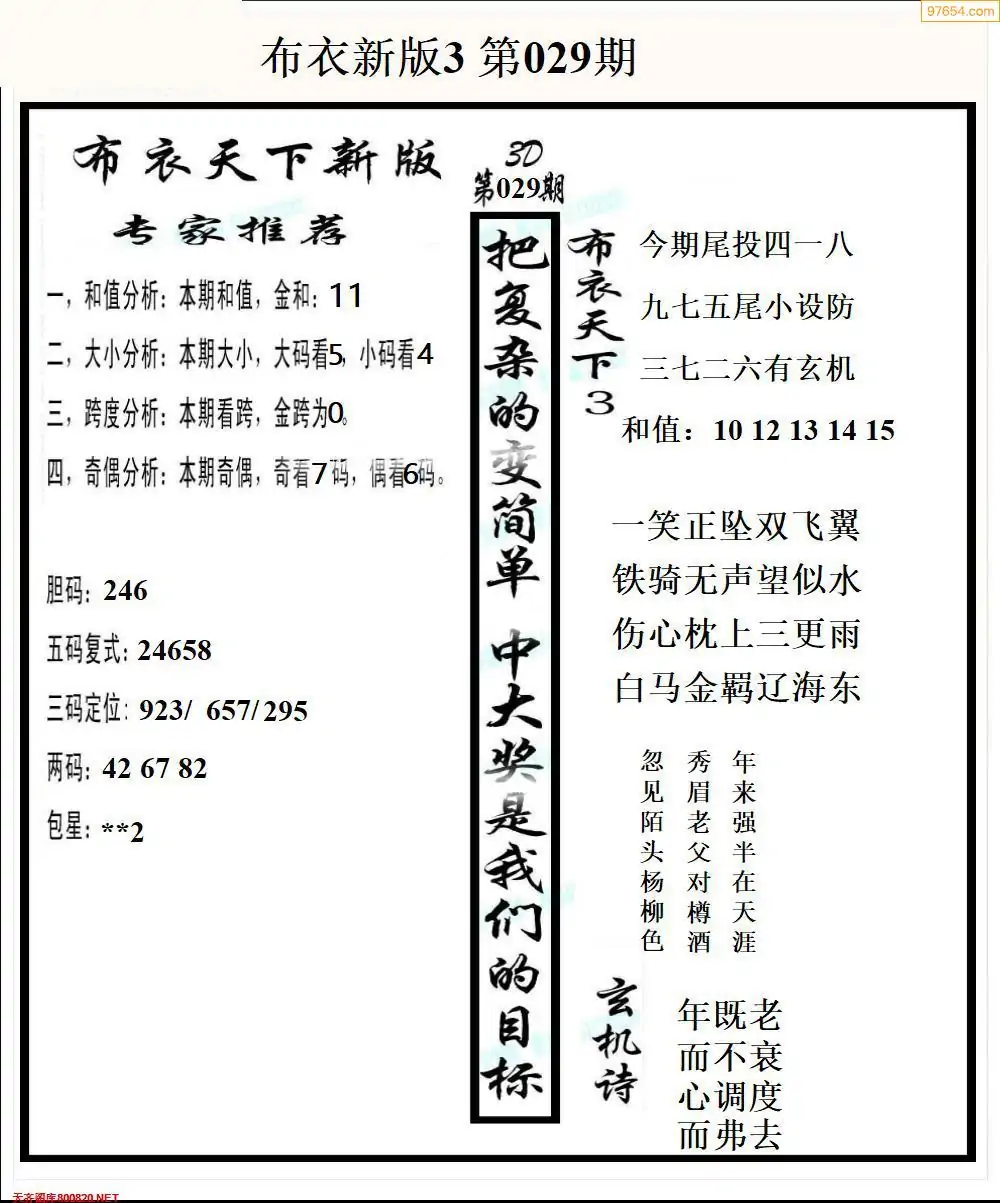 97654.com
布衣新版3 第029期
布衣天下新版
专家推荐
一，和值分析：本期和值，金和：11
二，大小分析：本期大小，大码看5，小码看4
三，跨度分析：本期看跨，金跨为0。
四，奇偶分析：本期奇偶，奇看7码，偶看6码。
胆码：246
五码复式：24658
三码定位：923/ 657/295
两码：42 67 82
包星：**2
3D
第029期
把复杂的变简单 中大奖是我们的目标
布衣天下3
今期尾投四一八
九七五尾小设防
三七二六有玄机
和值：10 12 13 14 15
一笑正坠双飞翼
铁骑无声望似水
伤心枕上三更雨
白马金羁辽海东
年来强半在天涯
秀眉老父对樽酒
忽见陌头杨柳色
玄机诗
年既老
而不衰
心调度
而弗去
天齐图库800820.NET